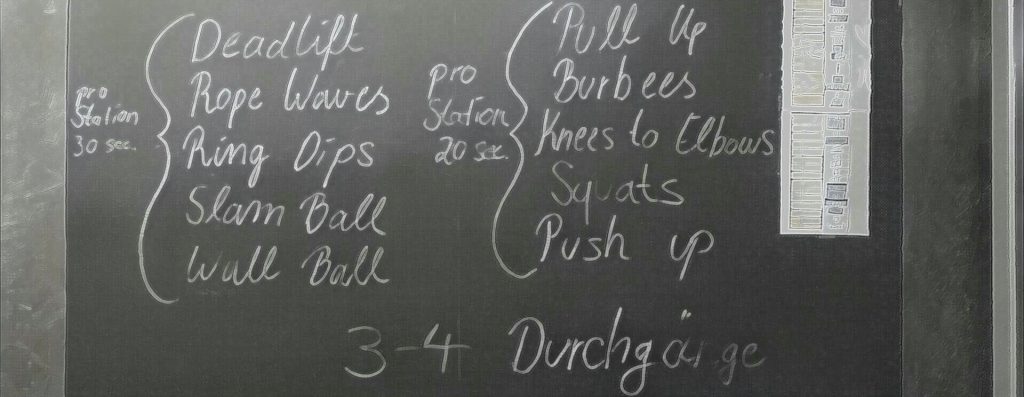 pro
Station
30 sec.
Deadlift
Rope Waves
Ring Dips
Slam Ball
Wall Ball
pro
Station
20 sec.
Pull Up
Burbees
Knees to Elbows
Squats
Push up
3-4 Durchgänge